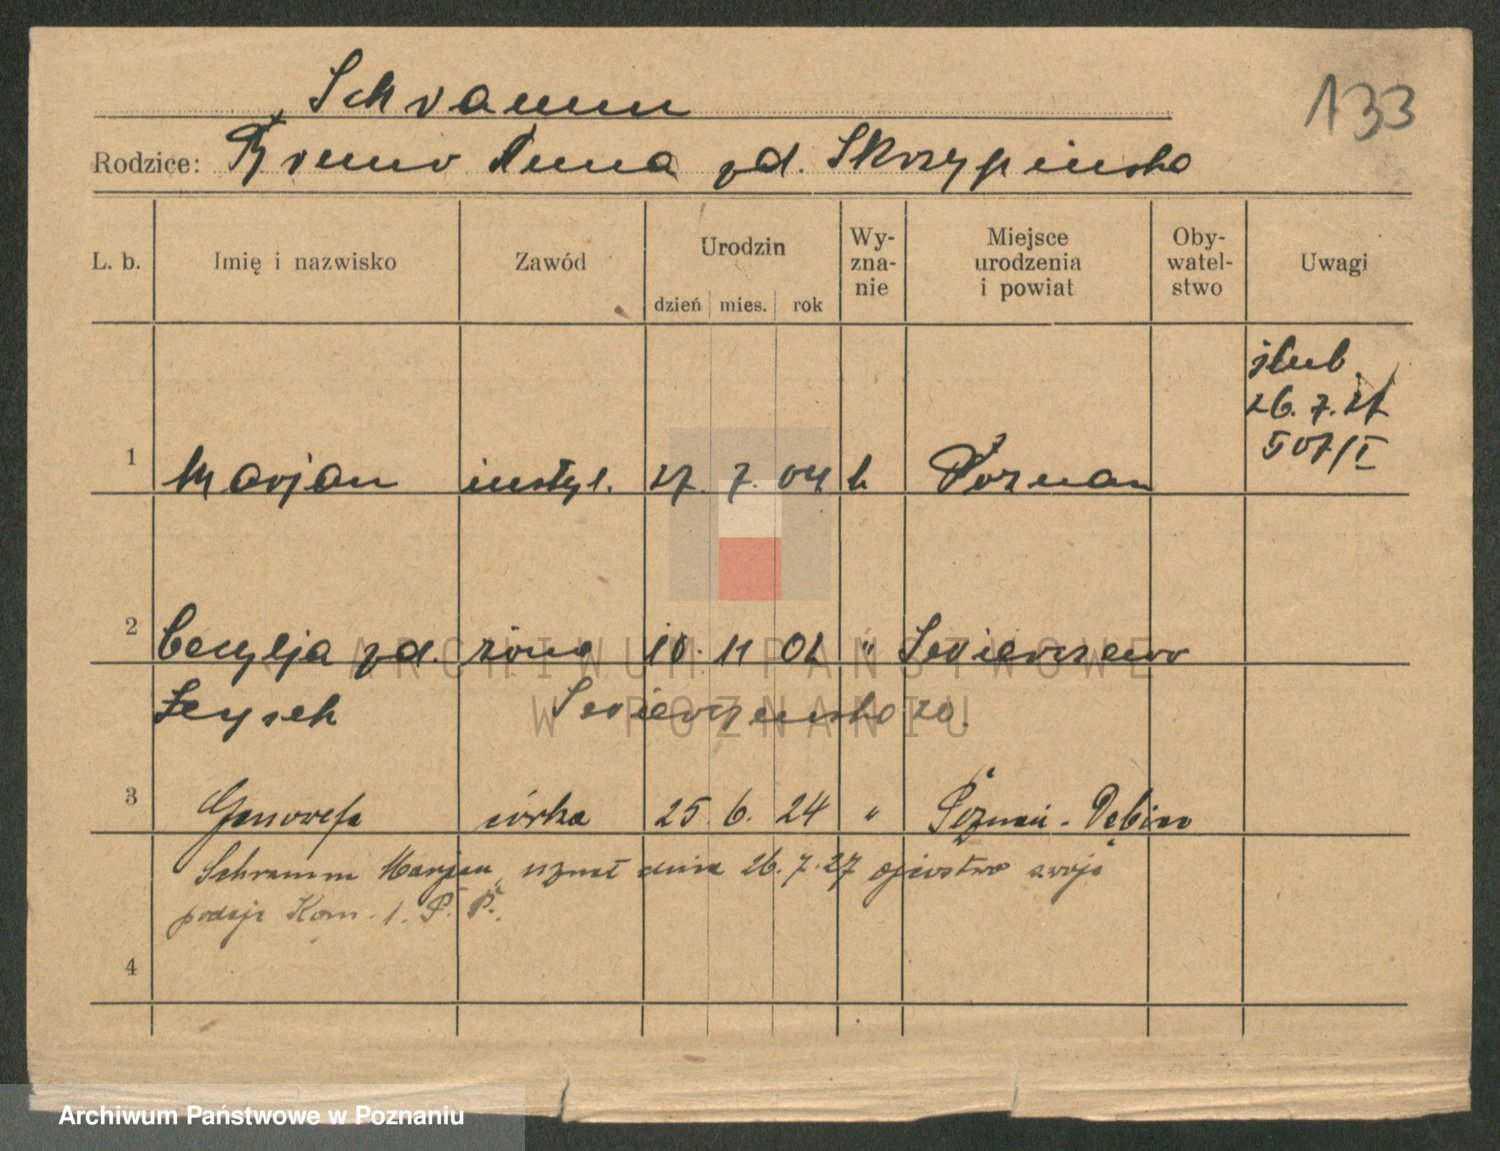 Schramm
133
Rodzice: Bruno Anna zd. Skrzypińska
L. b. Imię i nazwisko Zawód Urodzin dzień mies. rok Wy-zna-nie Miejsce urodzenia i powiat Oby-watel-stwo Uwagi
ślub
26. 7. 27
507/I
1 Marjan instyl. 27. 7. 04 k Poznań
2 Cecylja zd. żona 10. 11 02 " Swierczewo
Swierczewska 20.
3 Genowefa córka 25. 6. 24 " Poznań - Dębiec
Schramm Marjan uznał dnia 26. 7. 27 ojcostwo swoje
podaje Kom. 1. P. P.
4
ARCHIWUM PAŃSTWOWE
W POZNANIU
Archiwum Państwowe w Poznaniu